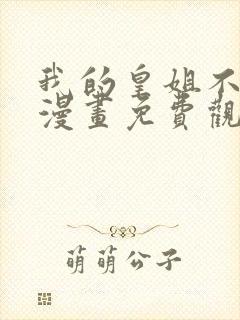 我的皇姐不
漫畫免費觀
萌萌公子